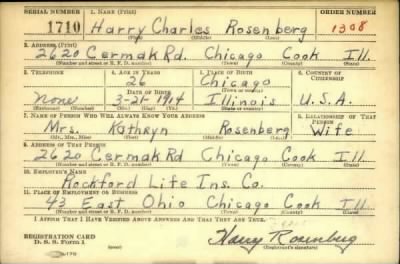 SERIAL NUMBER 1. NAME (Print) ORDER NUMBER
1710 Harry Charles Rosenberg 1308
(First) (Middle) (Last)
2. ADDRESS (Print)
2620 Cermak Rd. Chicago Cook Ill.
(Number and street or R. F. D. number) (Town) (County) (State)
3. TELEPHONE 4. AGE IN YEARS 5. PLACE OF BIRTH 6. COUNTRY OF CITIZENSHIP
26 Chicago
DATE OF BIRTH (Town or county)
None 3-21-1914 Illinois U.S.A.
(Exchange) (Number) (Mo.) (Day) (Yr.) (State or country)
7. NAME OF PERSON WHO WILL ALWAYS KNOW YOUR ADDRESS 8. RELATIONSHIP OF THAT PERSON
Mrs. Kathryn Rosenberg Wife
(Mr., Mrs., Miss) (First) (Middle) (Last)
9. ADDRESS OF THAT PERSON
2620 Cermak Rd Chicago Cook Ill
(Number and street or R. F. D. number) (Town) (County) (State)
10. EMPLOYER'S NAME
Rockford Life Ins. Co.
11. PLACE OF EMPLOYMENT OR BUSINESS
43 East Ohio Chicago Cook Ill
(Number and street or R. F. D. number) (Town) (County) (State)
I AFFIRM THAT I HAVE VERIFIED ABOVE ANSWERS AND THAT THEY ARE TRUE.
REGISTRATION CARD
D. S. S. Form 1 Harry Rosenberg
(Registrant's signature)